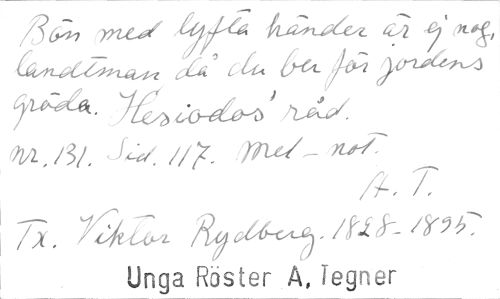 Bön med lyfta händer är ej nog,
landtman då du ber för jordens
gröda. Hesiodos' råd.
nr. 131. Sid. 117. Mel-not.
A. T.
Tx. Viktor Rydberg. 1828-1895.
Unga Röster A. Tegner